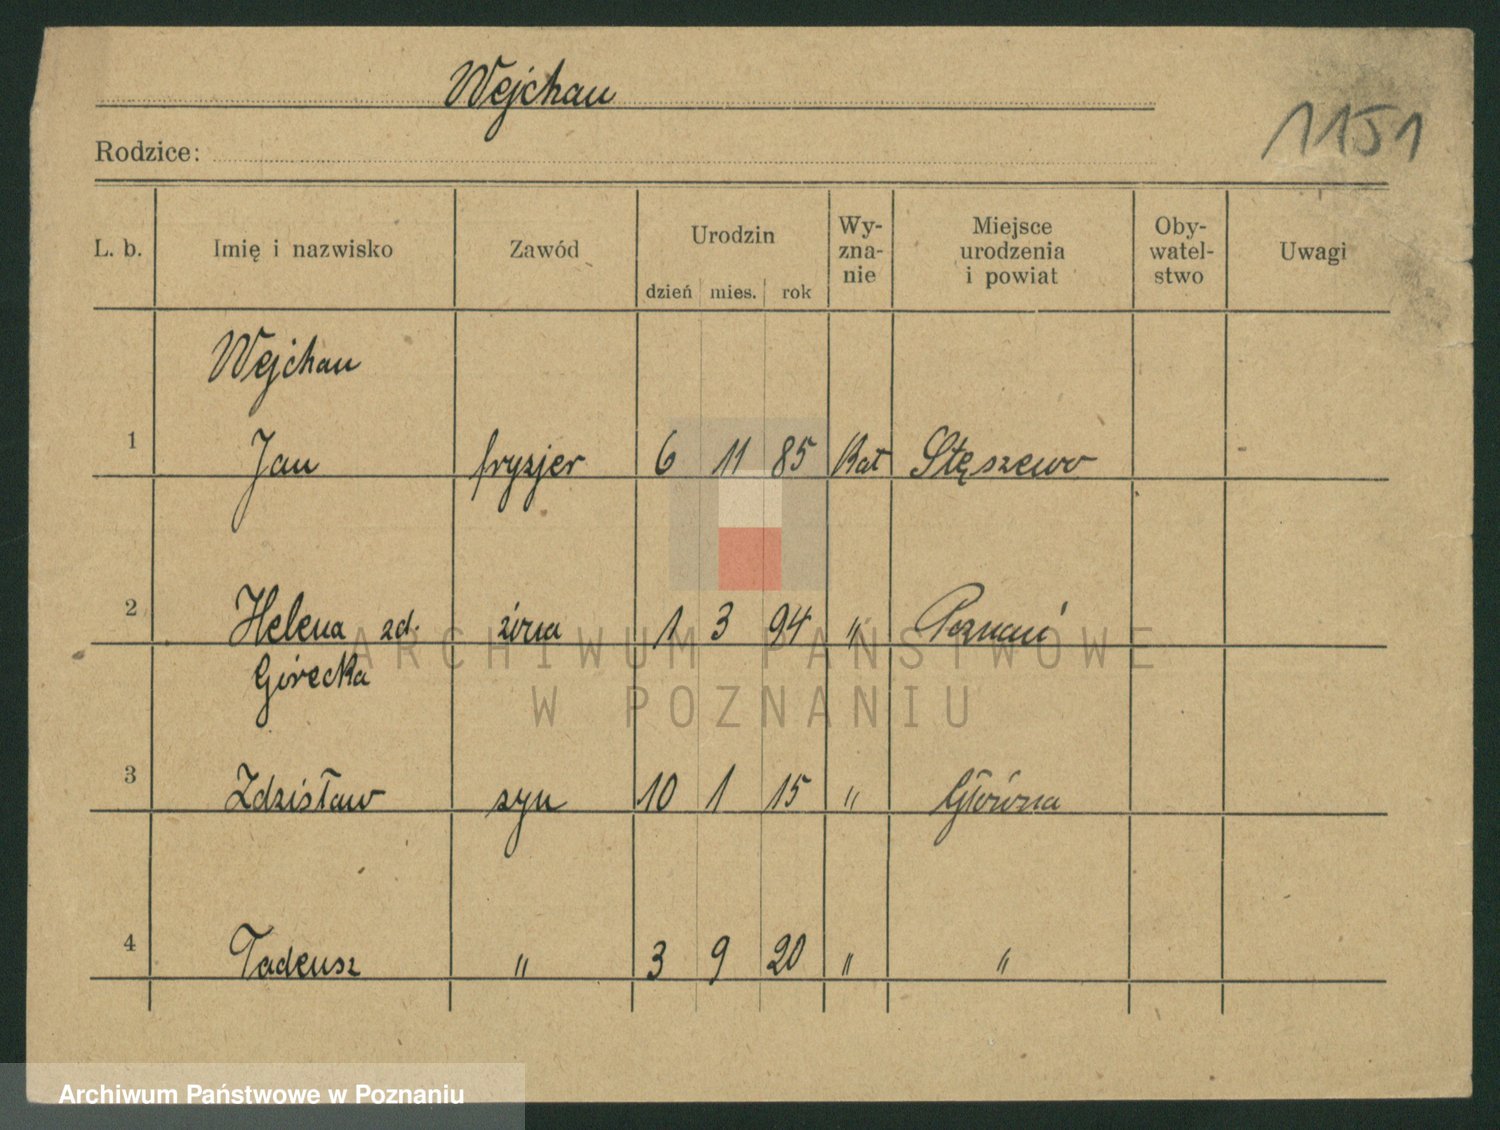 Wejchau
1151
Rodzice:
L. b. Imię i nazwisko Zawód Urodzin dzień mies. rok Wy-zna-nie Miejsce urodzenia i powiat Oby-watel-stwo Uwagi
Wejchau
1 Jan fryzjer 6 11 85 Kat Stęszewo
2 Helena zd. żona 1 3 94 " Poznań
Górecka
3 Zdzisław syn 10 1 15 " Główna
4 Tadeusz " 3 9 20 " "
ARCHIWUM PAŃSTWOWE
W POZNANIU
Archiwum Państwowe w Poznaniu